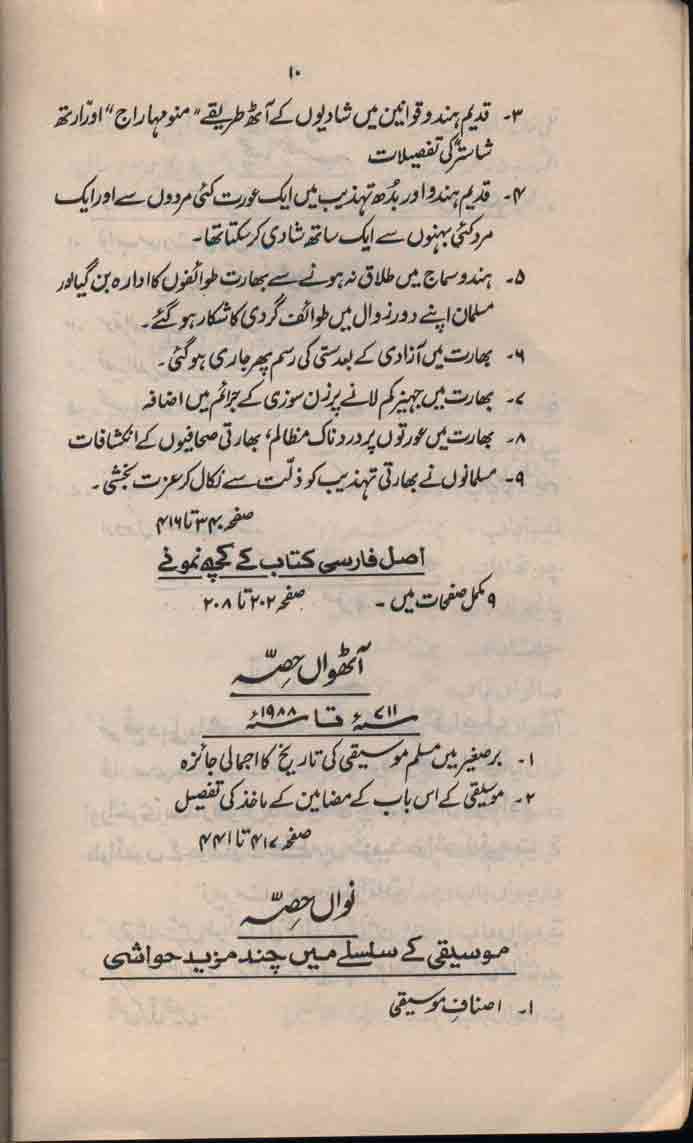 ۱۰
۳۔ قدیم ہندو قوانین میں شادیوں کے آٹھ طریقے "منو مہاراج" اور ارتھ
شاستر کی تفصیلات
۴۔ قدیم ہندو اور بدُھ تہذیب میں ایک عورت کئی مردوں سے اور ایک
مرد کئی بہنوں سے ایک ساتھ شادی کر سکتا تھا۔
۵۔ ہندو سماج میں طلاق نہ ہونے سے بھارت طوائفوں کا ادارہ بن گیا اور
مسلمان اپنے دورِ زوال میں طوائف گردی کا شکار ہو گئے۔
۶۔ بھارت میں آزادی کے بعد ستی کی رسم پھر جاری ہو گئی۔
۷۔ بھارت میں جہیز کم لانے پر زن سوزی کے جرائم میں اضافہ
۸۔ بھارت میں عورتوں پر دردناک مظالم، بھارتی صحافیوں کے انکشافات
۹۔ مسلمانوں نے بھارتی تہذیب کو ذلّت سے نکال کر عزت بخشی۔
صفحہ ۳۴۰ تا ۴۱۶
اصل فارسی کتاب کے کچھ نمونے
۹ مکمل صفحات میں۔ صفحہ ۲۰۲ تا ۲۰۸
آٹھواں حصّہ
سنہ ۷۱۱ء تا سنہ ۱۹۸۸ء
۱۔ برصغیر میں مسلم موسیقی کی تاریخ کا اجمالی جائزہ
۲۔ موسیقی کے اس باب کے مضامین کے ماخذ کی تفصیل
صفحہ ۴۱۷ تا ۴۴۱
نواں حصّہ
موسیقی کے سلسلے میں چند مزید حواشی
۱۔ اصنافِ موسیقی